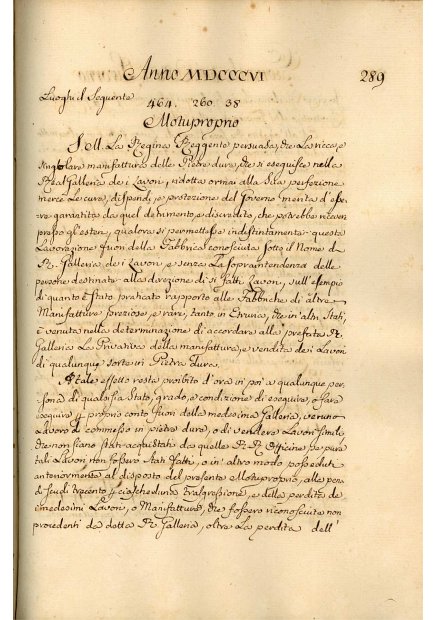 Anno MDCCCVI
289
Luoghi il Seguente
464. 260 38
Motuproprio
S. M. La Regina Reggente persuasa, che La ricca, e
singolare manifattura delle Pietre dure, che si eseguisce nella
Real Galleria dei Lavori, ridotta ormai alla sua perfezione
mercè le cure, dispendi, e protezione del Governo merita d'esse
re garantita da quel detrimento, e discredito, che potrebbe ricever
presso gl'esteri, qualora si permettesse indistintamente questa
Lavorazione fuori della Fabbrica conosciuta sotto il Nome di
R. Galleria dei Lavori, e senza La sopraintendenza delle
persone destinate alla direzione di si fatti Lavori, sull'esempio
di quanto è stato praticato rapporto alle Fabbriche di altre
Manifatture preziose, e rare, tanto in Etruria, che in altri Stati,
è venuta nella determinazione di accordare alla prefata R.
Galleria La Privativa della manifattura, e vendita dei Lavori
di qualunque sorte in Pietra Dura.
A tale effetto resta proibito d'ora in poi a qualunque per
sona di qualsisia Stato, grado, e condizione di eseguire, o fare
eseguire p proprio conto fuori della medesima Galleria, veruno
Lavoro di commesso in pietra dura, o di vendere Lavori simili
che non siano stati acquistati da quelle R. R. Officine se pure
tali Lavori non fossero stati fatti, o in altro modo posseduti
anteriormente al disposto del presente Motuproprio, alle pene
di scudi trecento p ciascheduna Trasgressione, e della perdita de
i medesimi Lavori, o Manifatture, che fossero riconosciute non
procedenti da detta R. Galleria, oltre La perdita dell'